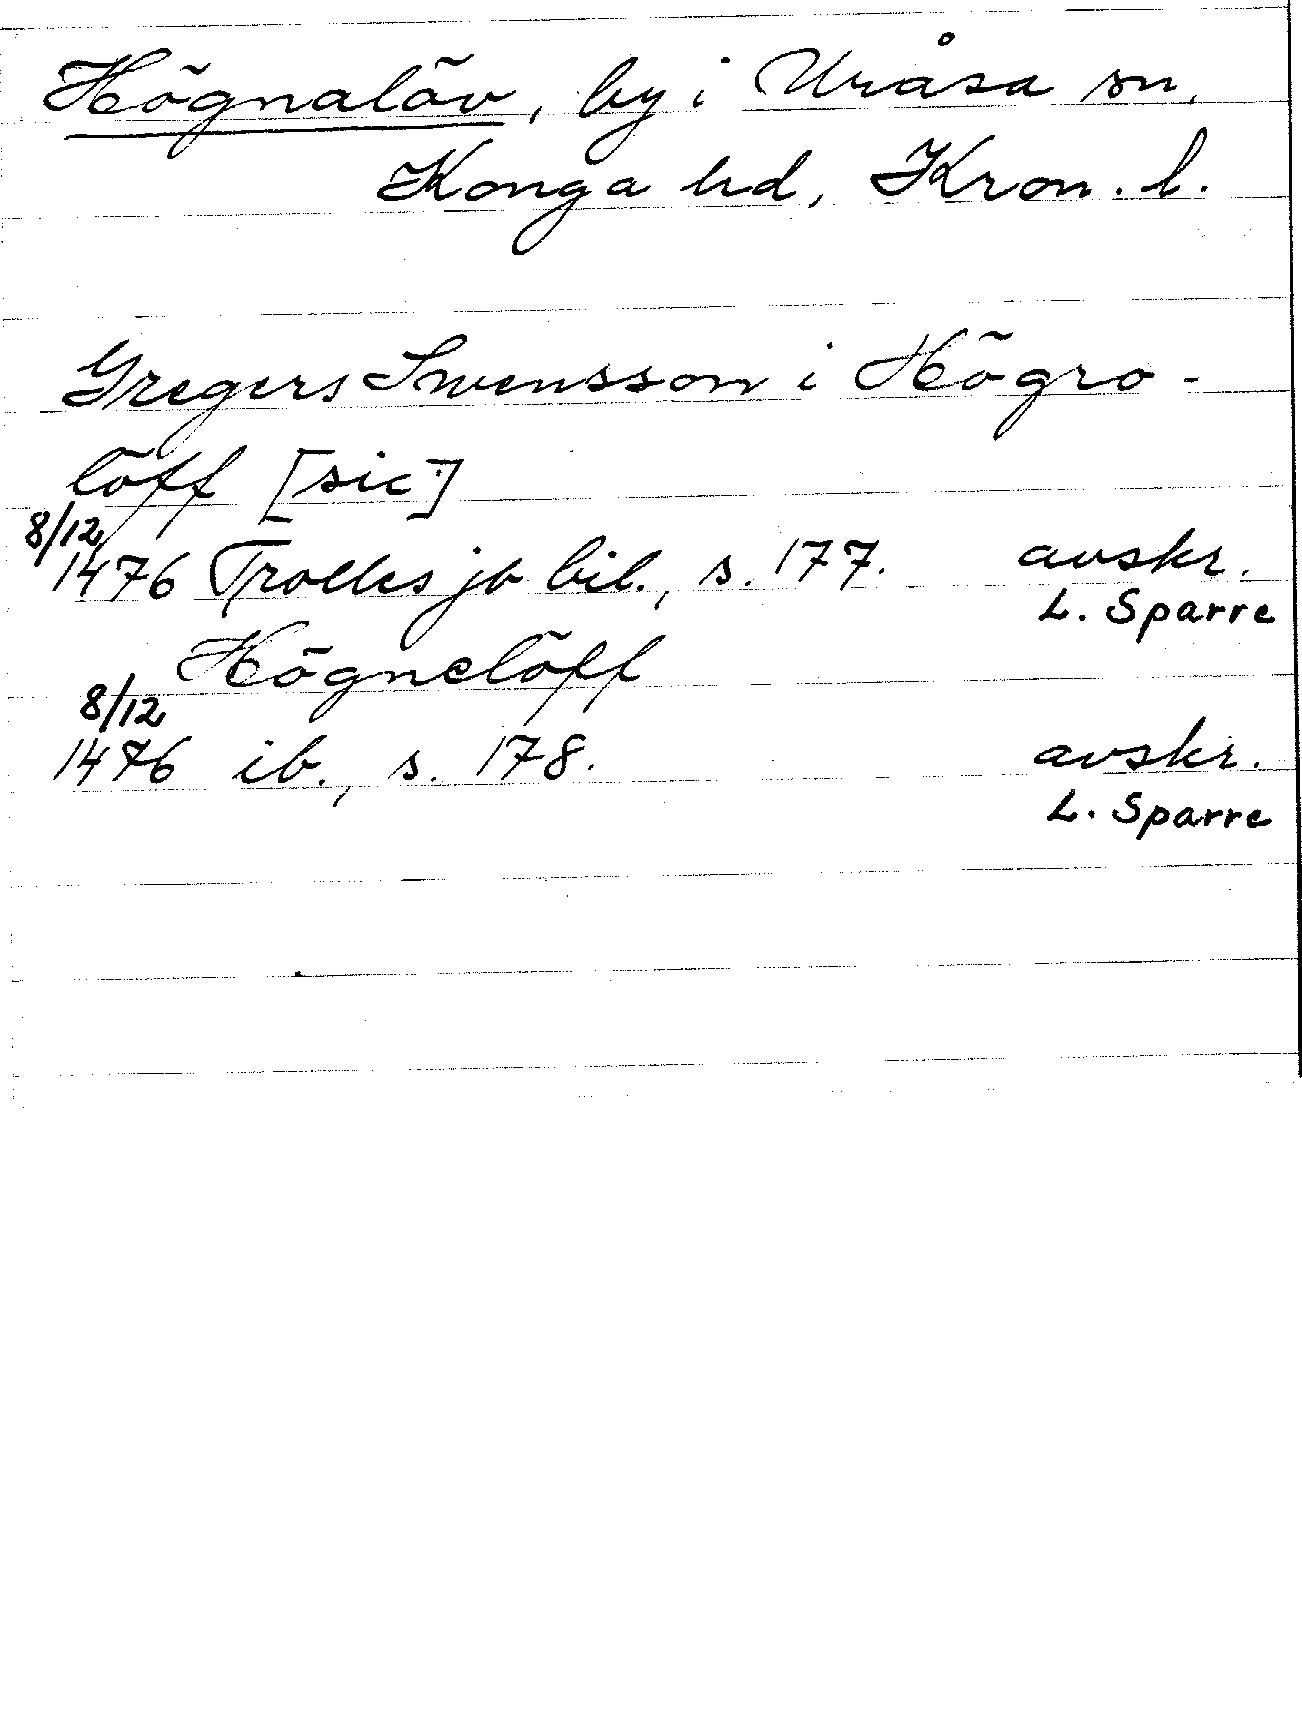 Högnalöv, by i Uråsa sn,
Konga hd, Kron. l.
Gregers Swensson i Högro-
löff [sic]
8/12
1476 Trolles jb bil., s. 177. avskr.
L. Sparre
Högnelöff
8/12
1476 ib., s. 178. avskr.
L. Sparre